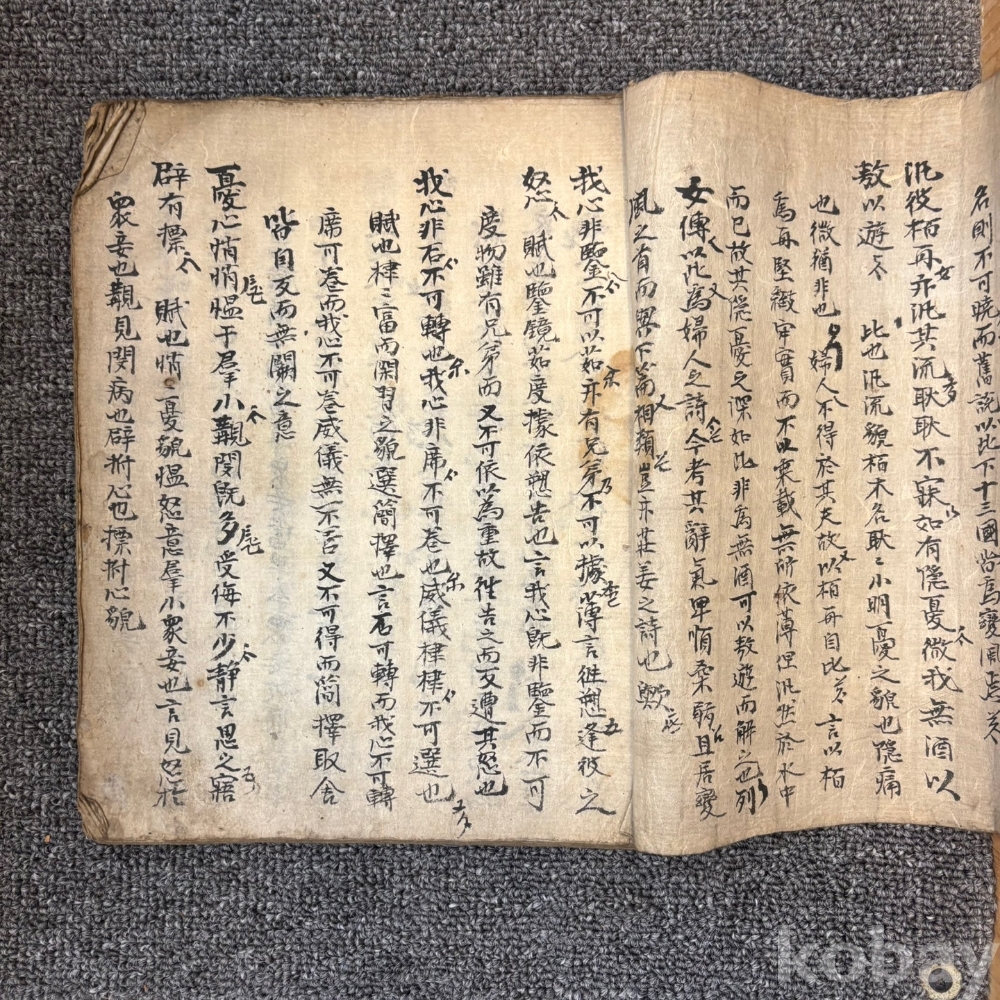 名則不可曉而舊說以此下十三國皆爲變風焉
汎彼栢再亦汎其流耿耿不寐如有隱憂微我無酒以
敖以遊 比也汎流貌栢木名耿〻小明憂之貌也隱痛
也微猶非也 婦人不得於其夫故以栢再自比 言以栢
爲再堅緻牢實而不以乘載無所依薄但汎然於水中
而已故其隱憂之深如此非爲無酒可以敖遊而解之也列
女傳以此爲婦人之詩今考其辭氣卑順柔弱且居變
風之首而與下篇相類豈亦莊姜之詩也歟
我心非鑒不可以茹亦有兄弟不可以據薄言徃愬逢彼之
怒 賦也鑒鏡茹度據依愬告也言我心旣非鑒而不可
度物雖有兄弟而又不可依以為重故徃告之而反遭其怒也
我心非石不可轉也我心非席不可卷也威儀棣棣不可選也
賦也棣〻富而閑習之貌選簡擇也言石可轉而我心不可轉
席可卷而我心不可卷威儀無不善又不可得而簡擇取舍
皆自反而無闕之意
憂心悄悄慍于羣小覯閔旣多受侮不少靜言思之寤
辟有摽 賦也悄〻憂貌慍怒意羣小衆妾也言見怒於
衆妾也覯見閔病也辟拊心也摽拊心貌
kobay